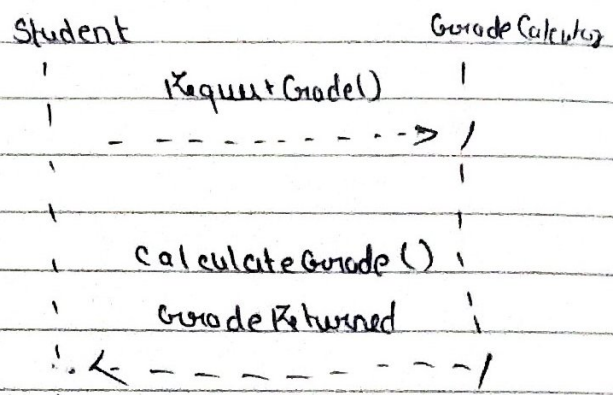 Student GradeCalculator
RequestGrade()
CalculateGrade()
GradeReturned